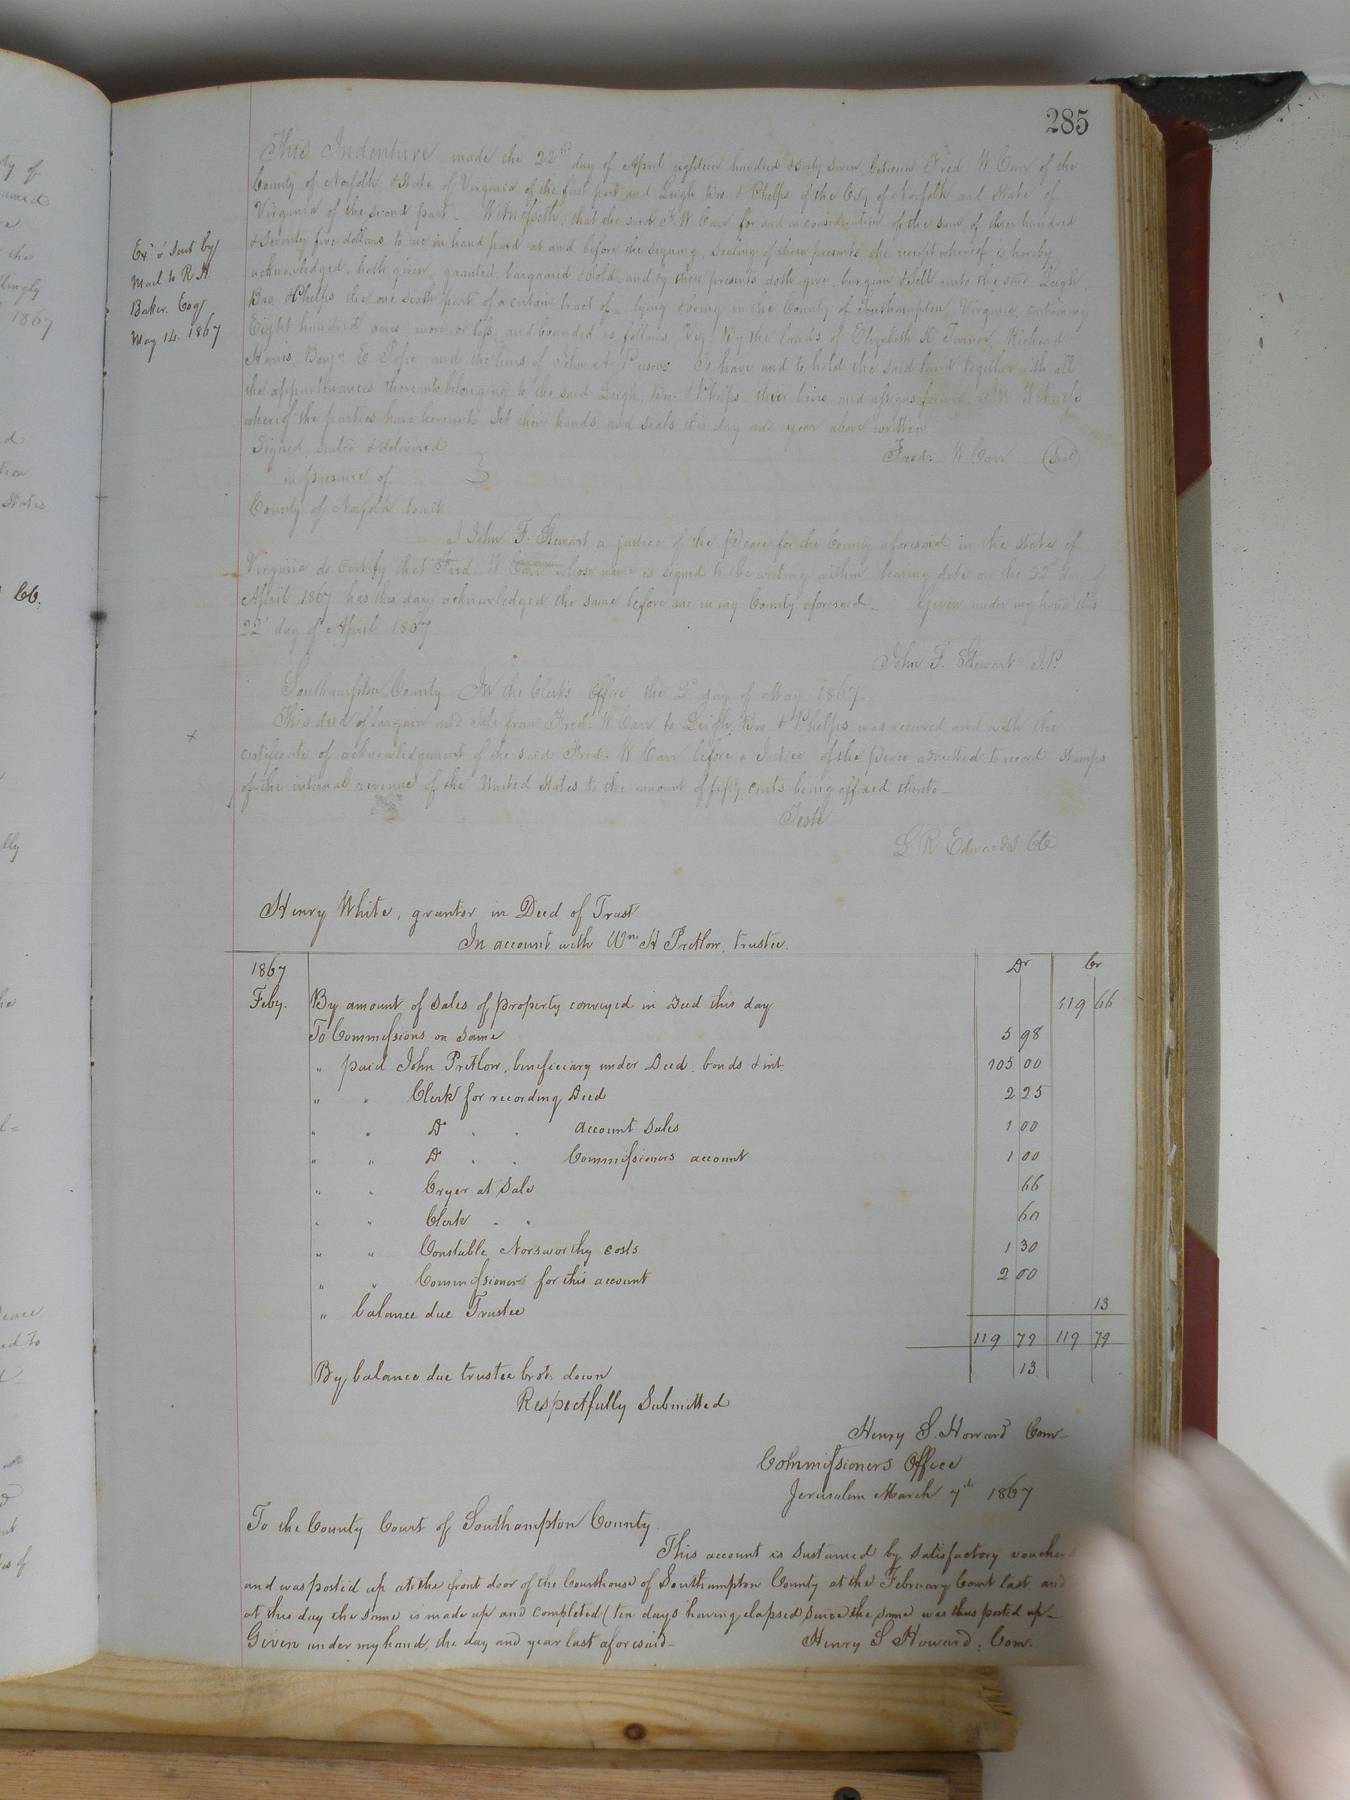 285
This Indenture made the 22nd day of April eighteen hundred & sixty seven between Fred W Carr of the
County of Norfolk & State of Virginia of the first part and Leigh Bro. & Phelps of the City of Norfolk and State of
Virginia of the second part. Witnesseth, that the said F. W Carr for and in consideration of the sum of three hundred
& Seventy five dollars to me in hand paid at and before the signing, sealing of these presents the receipt whereof is hereby
acknowledged, hath given, granted, bargained & sold, and by these presents doth give, bargain & Sell unto the said Leigh
Bro. & Phelps the one sixth part of a certain tract of lying & being in the County of Southampton, Virginia, containing
Eight hundred acres more or less, and bounded as follows, Viz: By the lands of Elizabeth K. Turner, Richard
Harris, Benjn E. Pope and the heirs of John A Person To have and to hold the said land together with all
the appurtenances thereunto belonging to the said Leigh, Bro & Phelps their heirs and assigns forever. In Witness
whereof the parties have hereunto Set their hands and seals the day and year above written
Signed, sealed & delivered
Fredk. W Carr (Seal)
in presence of
County of Norfolk to wit
I John F. Stewart a justice of the Peace for the County aforesaid in the State of
Virginia do certify that Fred. W Carr whose name is signed to the writing within bearing date on the 22d day of
April 1867 has this day acknowledged the same before me in my County aforesaid. Given under my hand this
22d day of April 1867
John F. Stewart J.P.
Southampton County In the Clerk's Office the 2d day of May 1867
This deed of bargain and Sale from Fred. W Carr to Leigh, Bro. & Phelps was received and with the
x
certificate of acknowledgement of the said Fred. W Carr before a Justice of the Peace admitted to record Stamps
of the internal revenue of the United States to the amount of fifty cents being affixed thereto
Teste
L R Edwards Clk
Exd & Sent by
Mail to R H
Baker. Esq
May 14. 1867
Henry White, grantor in Deed of Trust
In account with Wm H Pretlow, trustee.
1867 Dr Cr
Feby. By amount of sales of property conveyed in Deed this day 119 66
To Commissions on Same 5 98
" paid John Pretlow, beneficiary under Deed, bonds & int. 105 00
" " Clerk for recording Deed 2 25
" " Do " " account Sales 1 00
" " Do " " Commissioners account 1 00
" " Cryer at Sale 66
" " Clerk " " 60
" " Constable Norsworthy costs 1 30
" " Commissioners for this account 2 00
" balance due Trustee 13
119 79 119 79
By balance due trustee brot. down 13
Respectfully Submitted
Henry S. Howard Com.
Commissioners Office
Jerusalem March 7th 1867
To the County Court of Southampton County.
This account is sustained by satisfactory vouchers
and was posted up at the front door of the Courthouse of Southampton County at the February Court last and
at this day the same is made up and completed (ten days having elapsed) since the same was thus posted up
Given under my hand, the day and year last aforesaid
Henry S Howard, Com.